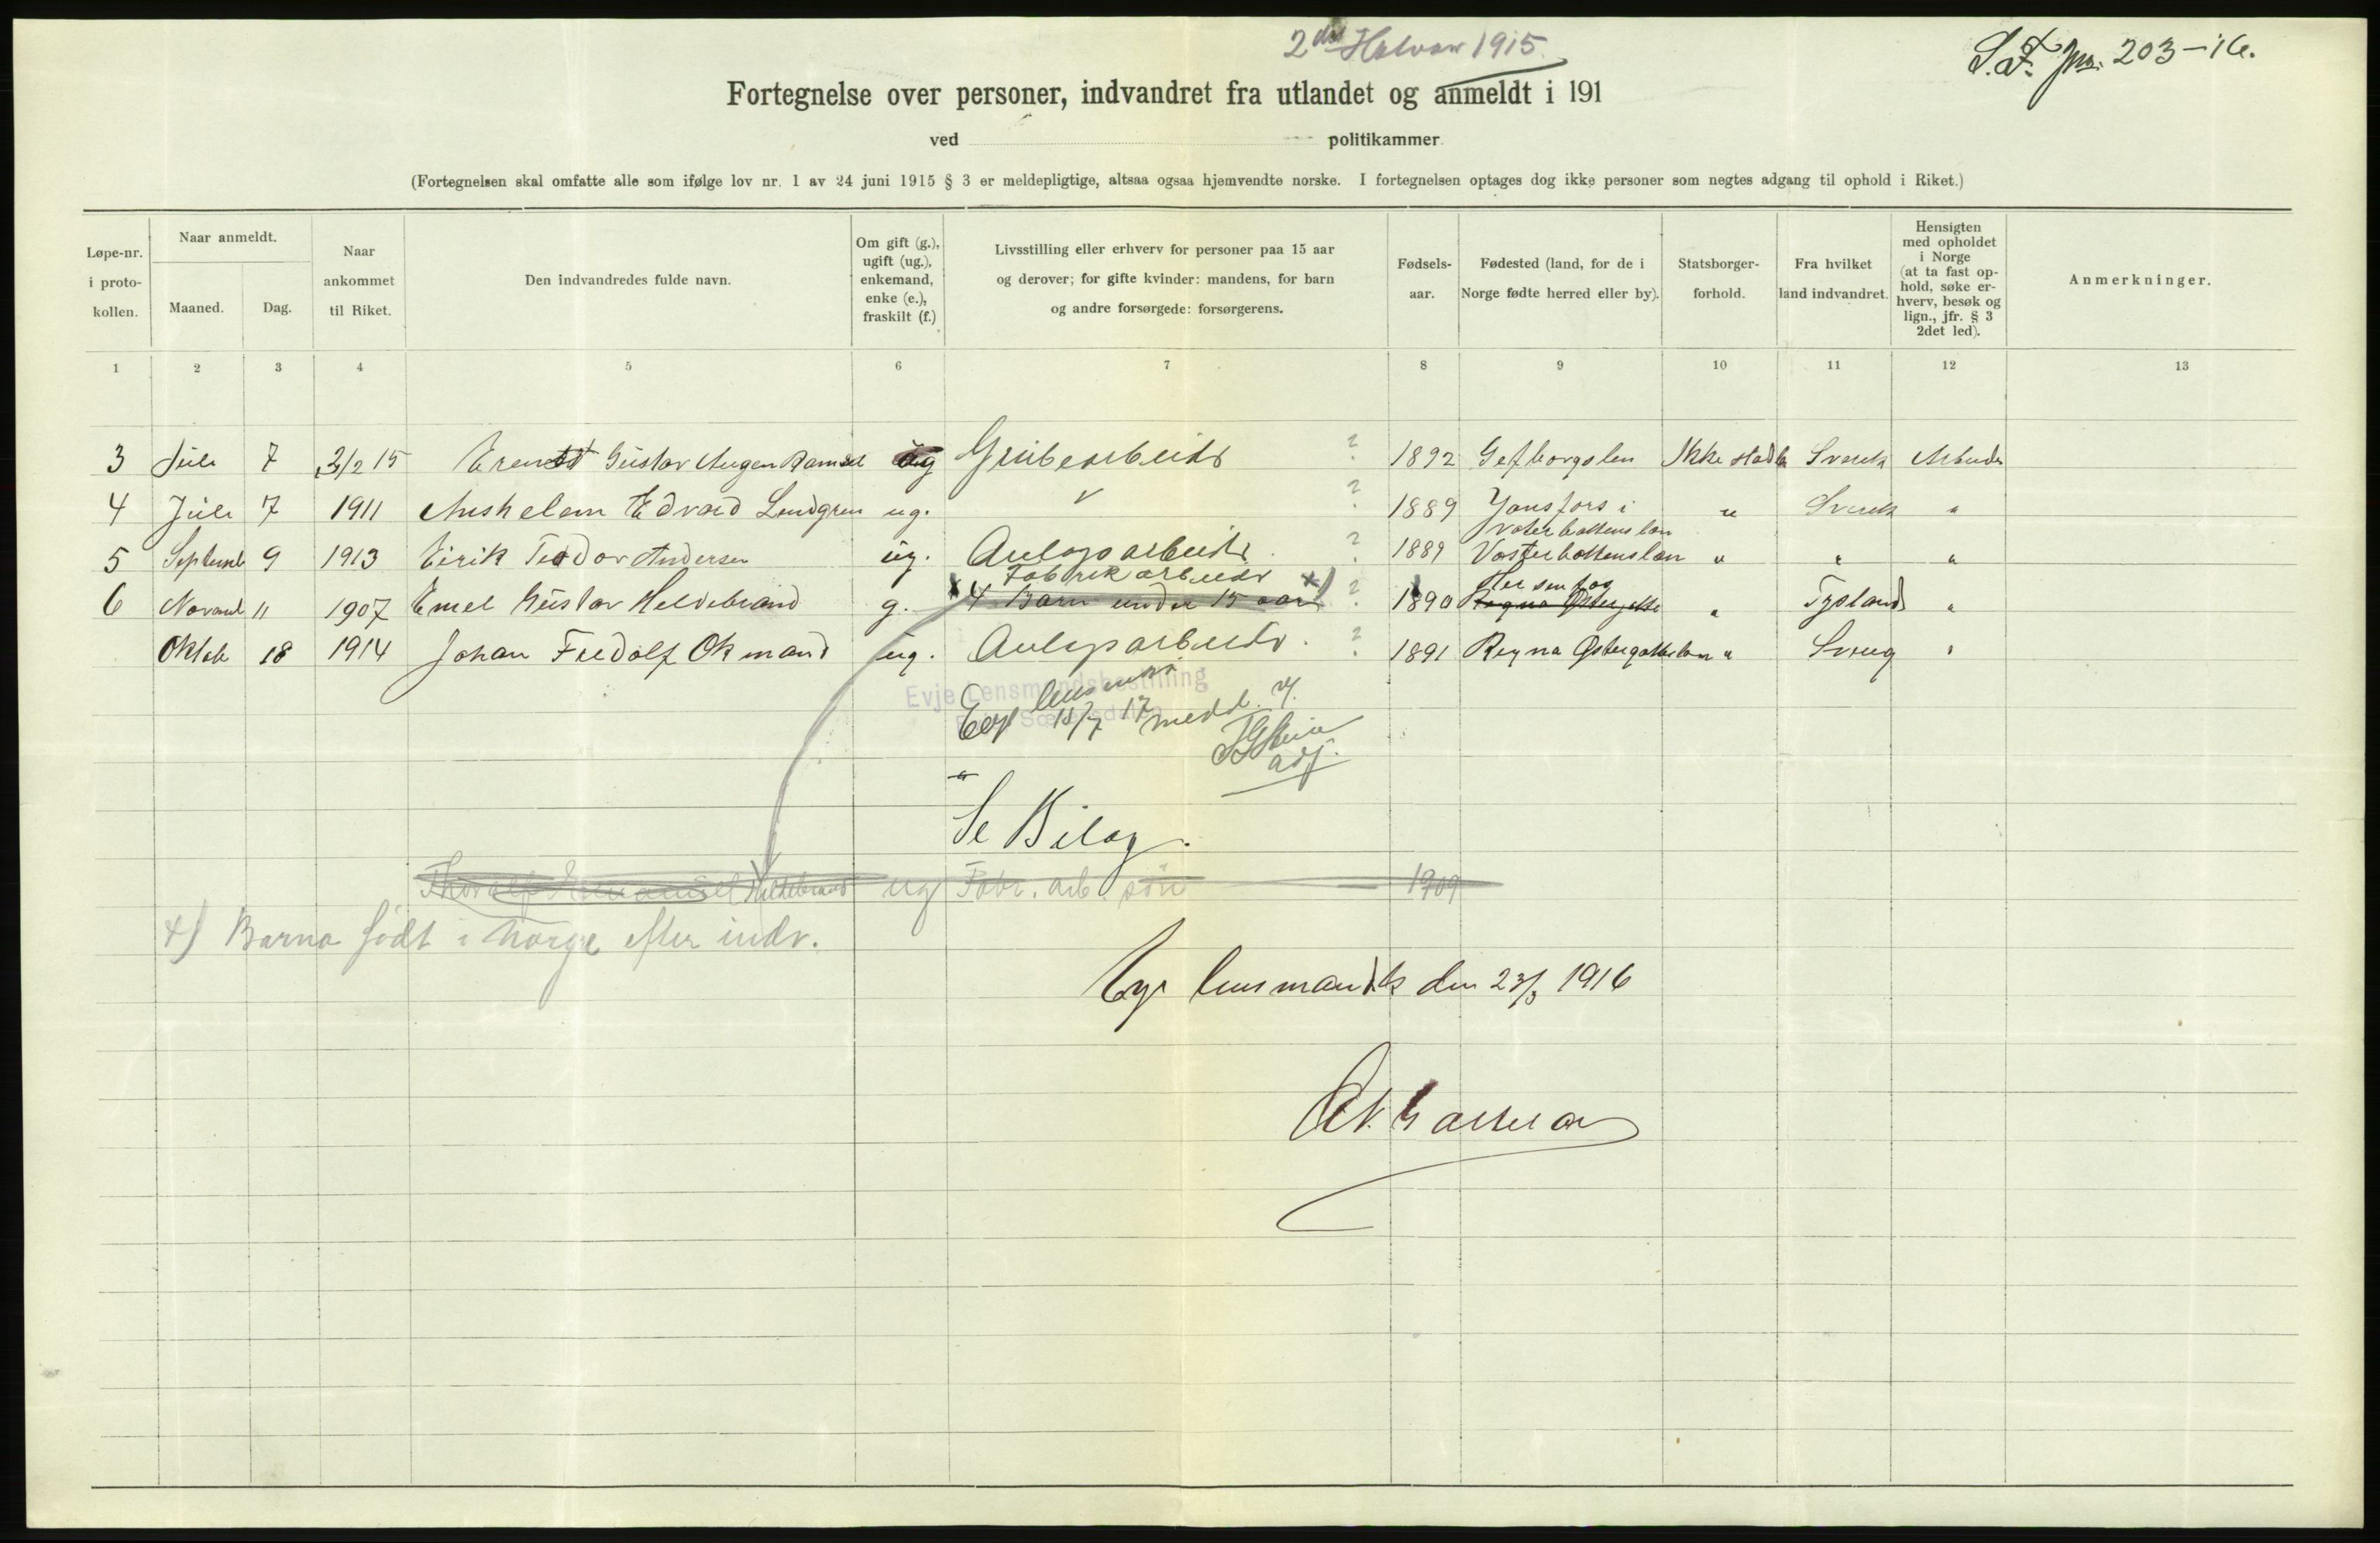 2det Halvaar 1915
S.F. Jnr. 203-16.
Fortegnelse over personer, indvandret fra utlandet og anmeldt i 191
ved politikammer
(Fortegnelsen skal omfatte alle som ifølge lov nr. 1 av 24 juni 1915 § 3 er meldepligtige, altsaa ogsaa hjemvendte norske. I fortegnelsen optages dog ikke personer som negtes adgang til ophold i Riket.)
Løpe-nr. i proto- kollen.
Naar anmeldt.
Maaned. Dag.
Naar ankommet til Riket.
Den indvandredes fulde navn.
Om gift (g.), ugift (ug.), enkemand, enke (e.), fraskilt (f.)
Livsstilling eller erhverv for personer paa 15 aar
og derover; for gifte kvinder: mandens, for barn
og andre forsørgede: forsørgerens.
Fødsels- aar.
Fødested (land, for de i Norge fødte herred eller by).
Statsborger- forhold.
Fra hvilket land indvandret.
Hensigten med opholdet i Norge (at ta fast op- hold, søke er- hverv, besøk og lign., jfr. § 3 2det led).
Anmerkninger.
1 2 3 4 5 6 7 8 9 10 11 12 13
3 Juli 7 3/2 15 Gustav ug Grubearbeider ? 1892 Gefborgslen Ikke Sverik Arbeide
4 Juli 7 1911 Anshelem Edvard Lendgren ug. ? 1889 Jonsfors i " Sverik "
Vosterbottenslan
5 Septemb 9 1913 Eirik Teodor Andersen ug. Anlegsarbeide ? 1889 Vosterbottenslan " " "
Fabrikarbeider
6 Novemb 11 1907 Emel Gustav Heldebrand g. 4 Barn under 15 aar x) ? 1890 Regna Østergotte " Tysland "
Oktob 18 1914 Johan Fredolf Okmand ug. Anlegsarbeide ? 1891 Regna Østergotteslan " Sverig "
Evje Lensmandsbestilling
lensmand
18/7 17 medd.
adj.
Se Bilag.
Thoralf Emanuel Hildebrand ug Fabr. arb. søn 1909
x) Barna født i Norge efter indv.
lensmandsk den 23/3 1916